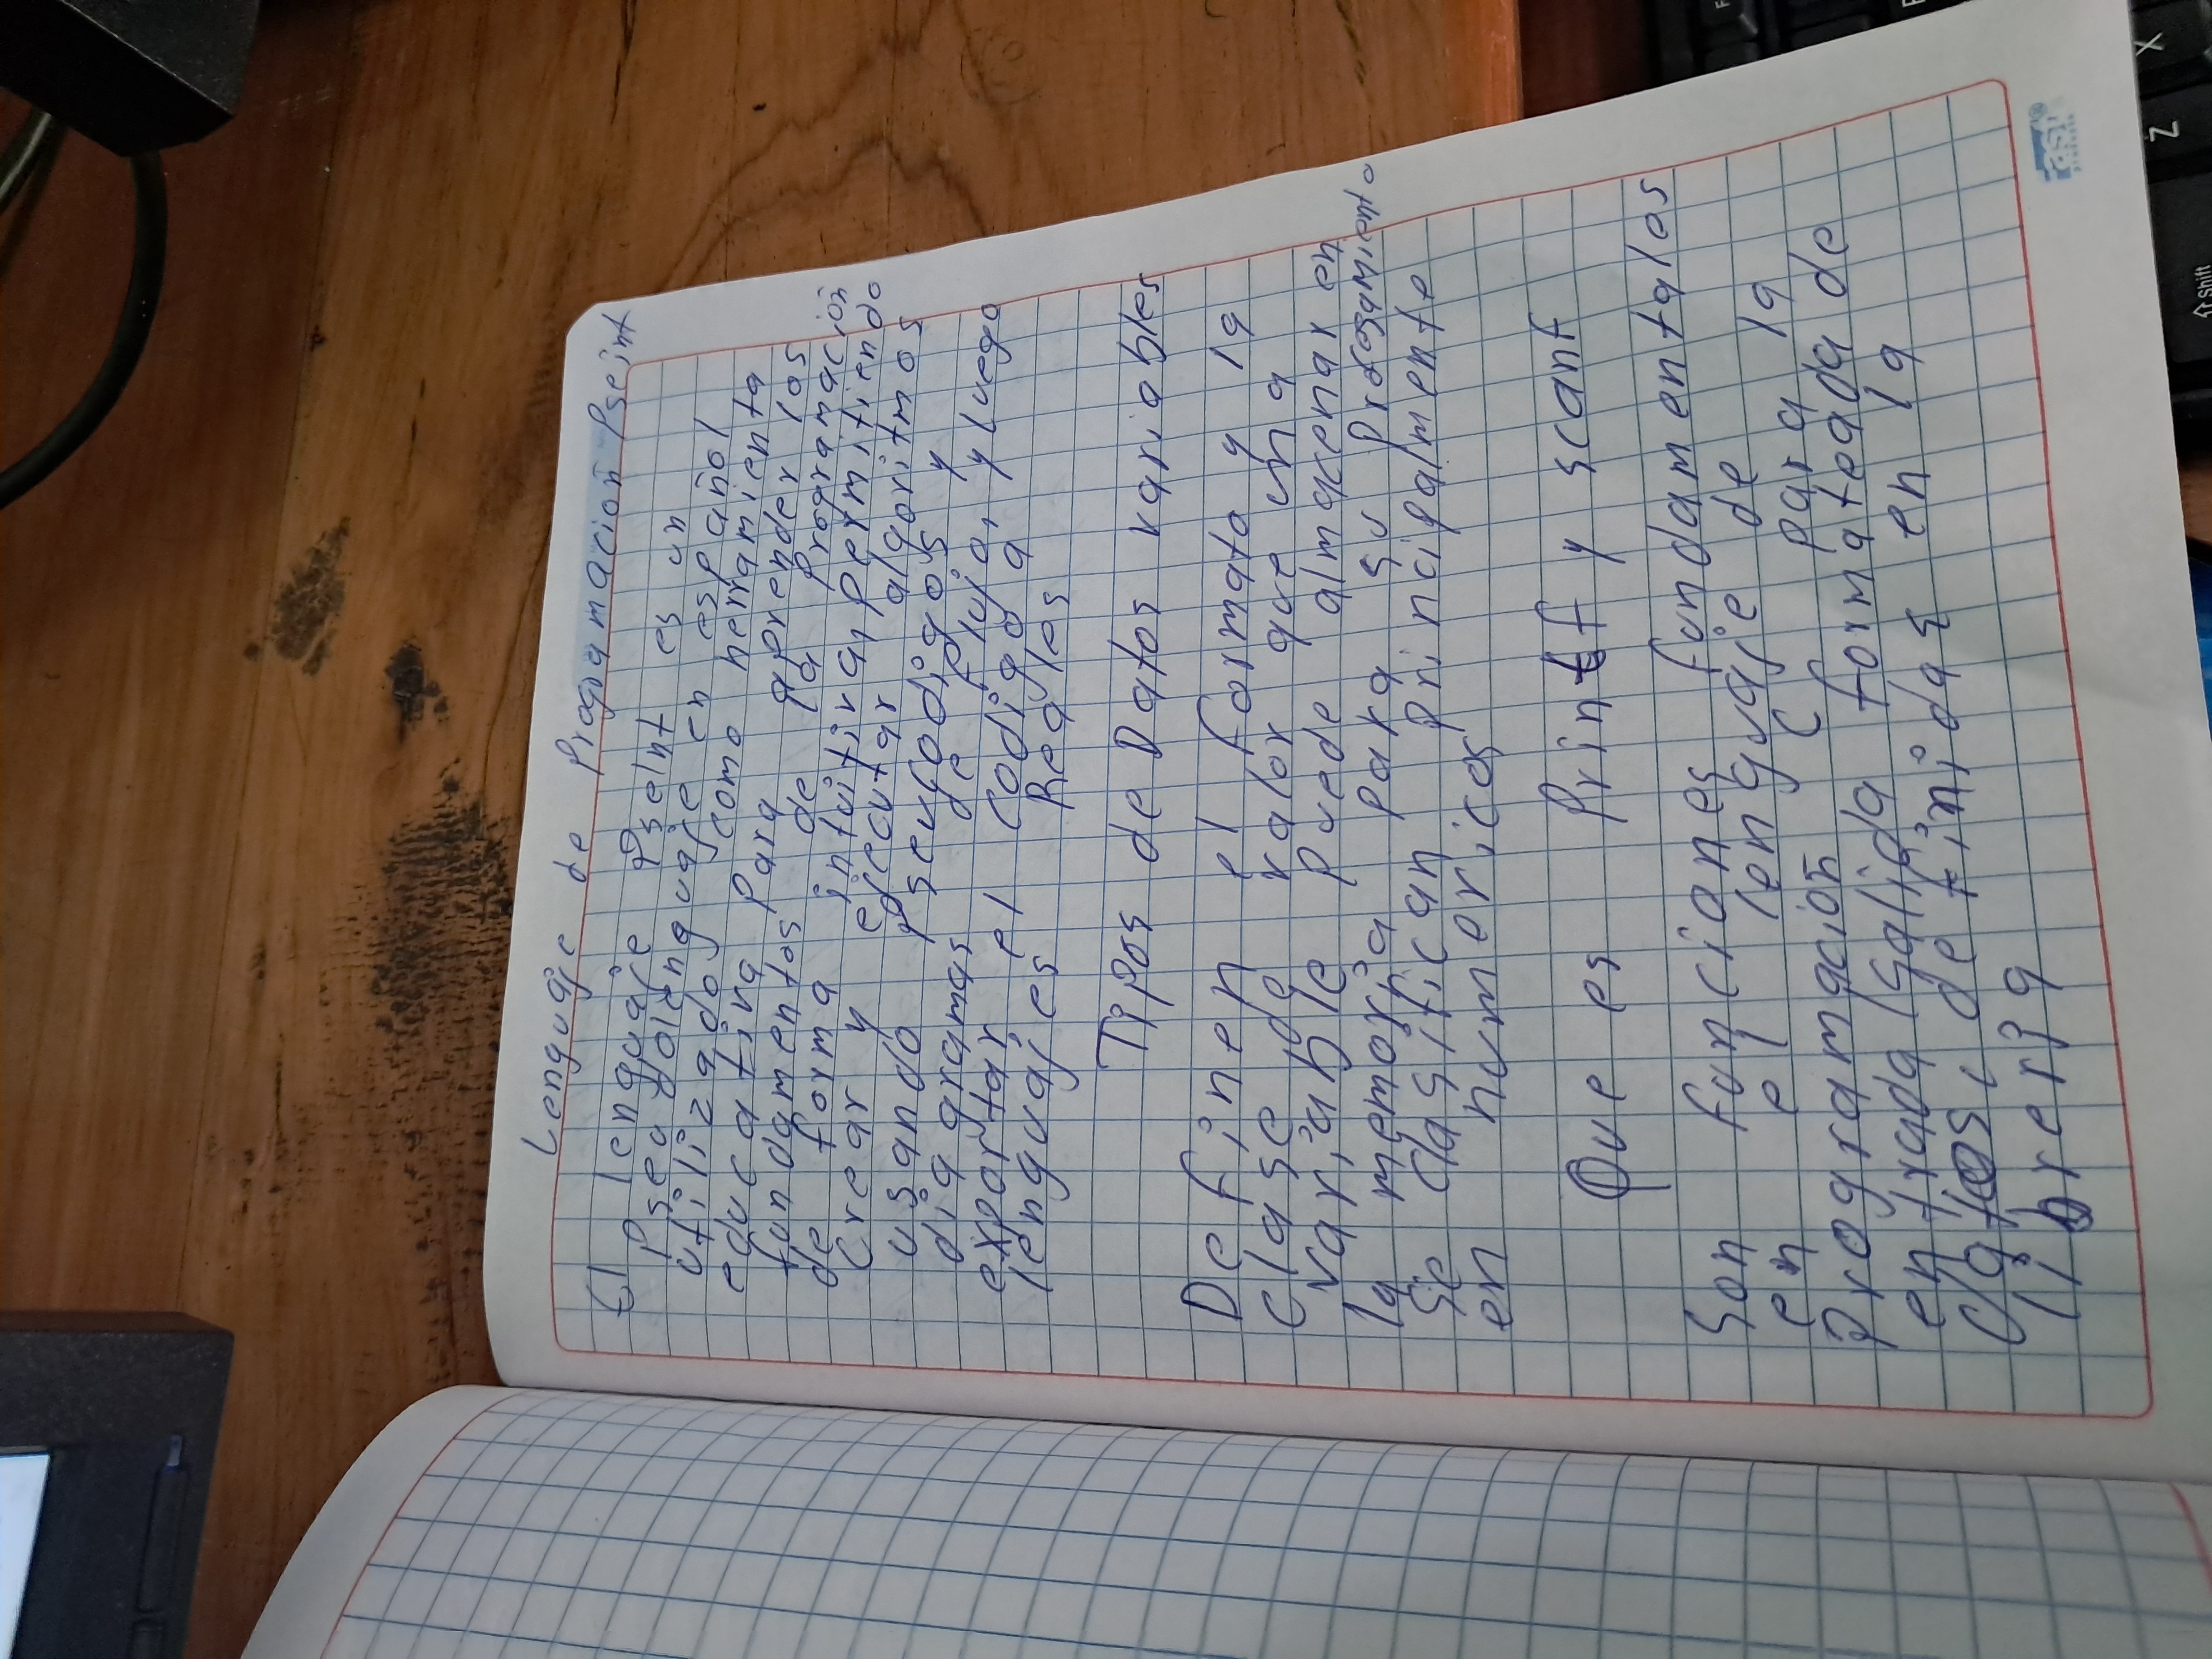 Lenguaje de Programacion Pseint
El lenguaje Pselnt es un
Pseudolenguaje en español
utilizado como herramienta
educativa para aprender los
fundamentos de la programación
de forma intuitiva, permitiendo
crear y ejecutar algoritmos
usando pseucodigos y
diagramas de flujo, y luego
exportar el codigo a
lenguajes Reales
Tipos de Datos variables
Definen el formato y la
clase de valor que una
variable puede almacenar en
la memoria para su Procogamiento
Se clasifican principalmente
en numericos
Que es Printf y scanf
Son funciones fundamentales
en el lenguaje de
Programación C para la
entrada (salida formateada de
datos, definidas en la
libreria
Z
X
Shift